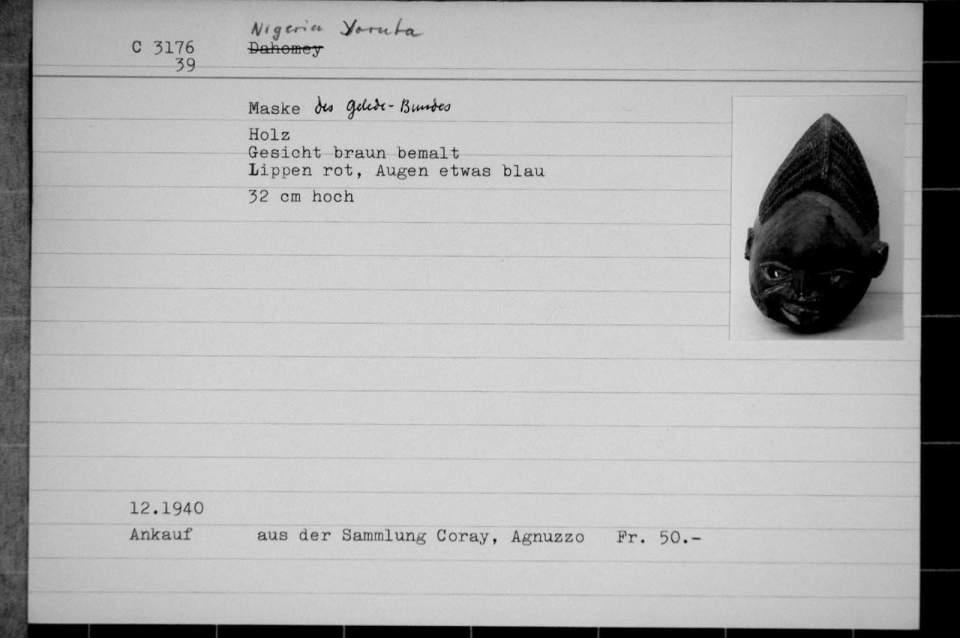 Nigeria Yoruba
C 3176 Dahomey
39
Maske des Gelede-Bundes
Holz
Gesicht braun bemalt
Lippen rot, Augen etwas blau
32 cm hoch
12.1940
Ankauf aus der Sammlung Coray, Agnuzzo Fr. 50.-